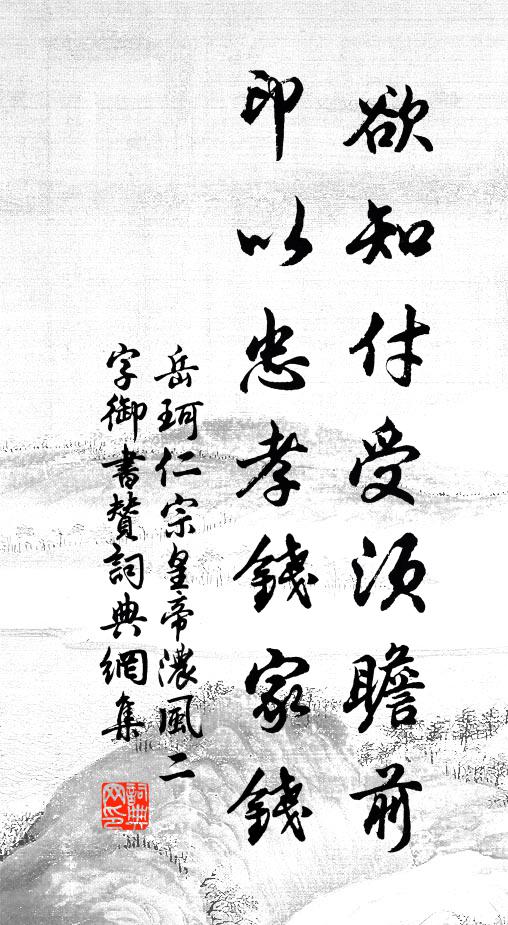 欲知付受須瞻前
印以忠孝錢家錢
岳珂仁宗皇帝濃風二
字御書贊詞典網集
詞典網印